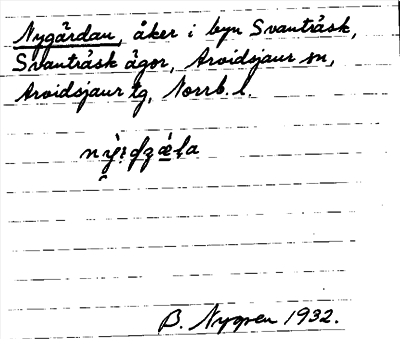 Nygärdan, åker i byn Svanträsk,
Svanträsk ägor, Arvidsjaur sn,
Arvidsjaur tg, Norrb. l.
B. Nygren 1932.